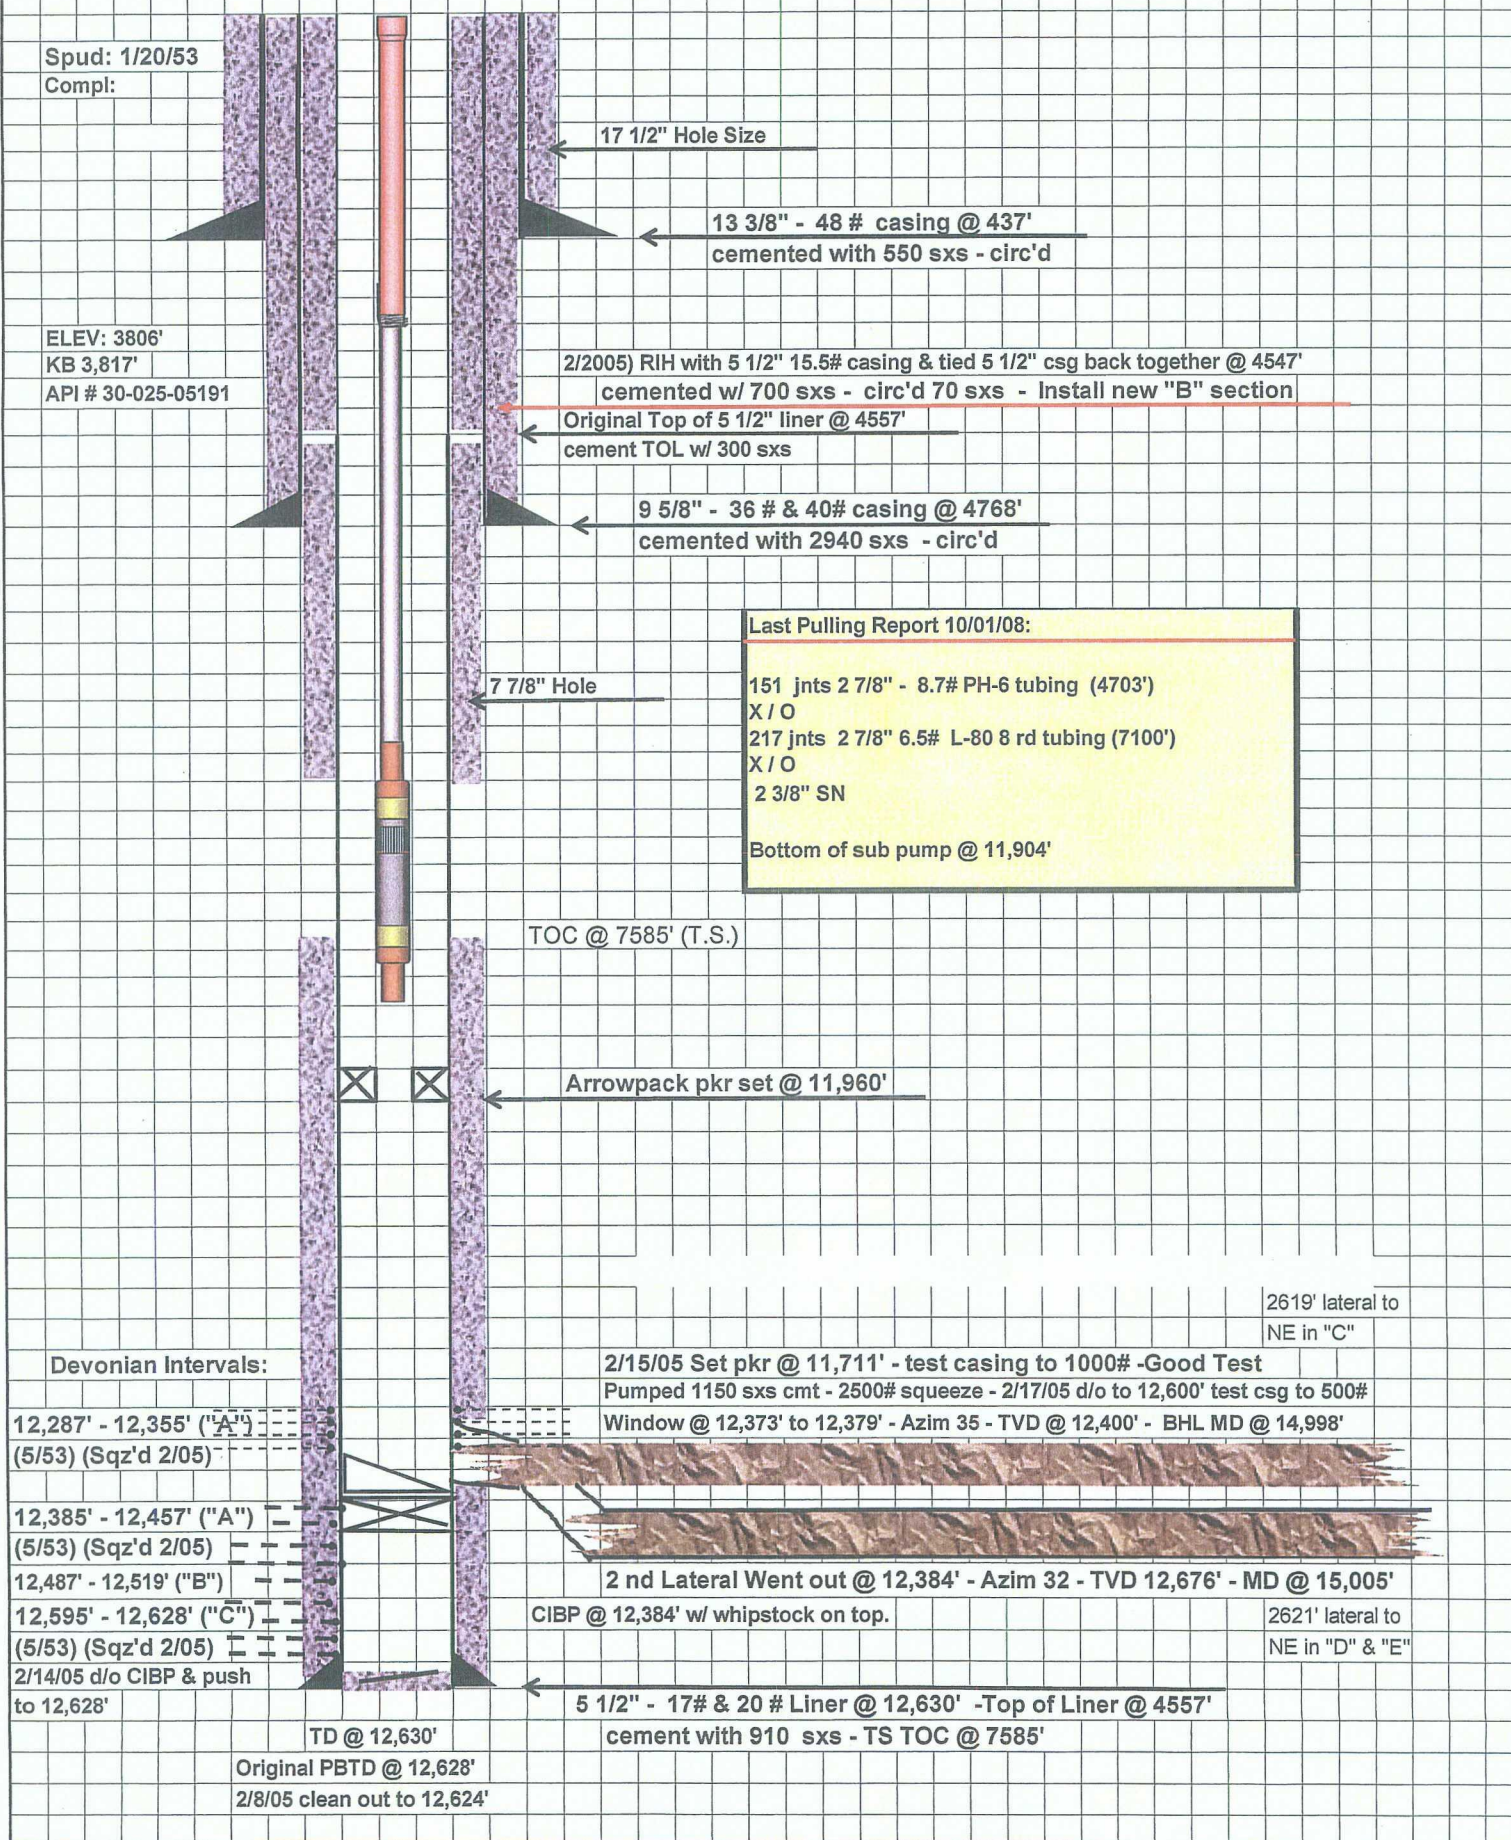 Spud: 1/20/53
Compl:
17 1/2" Hole Size
13 3/8" - 48 # casing @ 437'
cemented with 550 sxs - circ'd
ELEV: 3806'
KB 3,817'
API # 30-025-05191
2/2005) RIH with 5 1/2" 15.5# casing & tied 5 1/2" csg back together @ 4547'
cemented w/ 700 sxs - circ'd 70 sxs - Install new "B" section
Original Top of 5 1/2" liner @ 4557'
cement TOL w/ 300 sxs
9 5/8" - 36 # & 40# casing @ 4768'
cemented with 2940 sxs - circ'd
Last Pulling Report 10/01/08:
151 jnts 2 7/8" - 8.7# PH-6 tubing (4703')
X / O
217 jnts 2 7/8" 6.5# L-80 8 rd tubing (7100')
X / O
2 3/8" SN
Bottom of sub pump @ 11,904'
7 7/8" Hole
TOC @ 7585' (T.S.)
Arrowpack pkr set @ 11,960'
2619' lateral to
NE in "C"
Devonian Intervals:
2/15/05 Set pkr @ 11,711' - test casing to 1000# -Good Test
Pumped 1150 sxs cmt - 2500# squeeze - 2/17/05 d/o to 12,600' test csg to 500#
12,287' - 12,355' ("A")
Window @ 12,373' to 12,379' - Azim 35 - TVD @ 12,400' - BHL MD @ 14,998'
(5/53) (Sqz'd 2/05)
12,385' - 12,457' ("A")
(5/53) (Sqz'd 2/05)
12,487' - 12,519' ("B")
2 nd Lateral Went out @ 12,384' - Azim 32 - TVD 12,676' - MD @ 15,005'
12,595' - 12,628' ("C")
CIBP @ 12,384' w/ whipstock on top.
2621' lateral to
(5/53) (Sqz'd 2/05)
NE in "D" & "E"
2/14/05 d/o CIBP & push
to 12,628'
5 1/2" - 17# & 20 # Liner @ 12,630' -Top of Liner @ 4557'
TD @ 12,630'
cement with 910 sxs - TS TOC @ 7585'
Original PBTD @ 12,628'
2/8/05 clean out to 12,624'